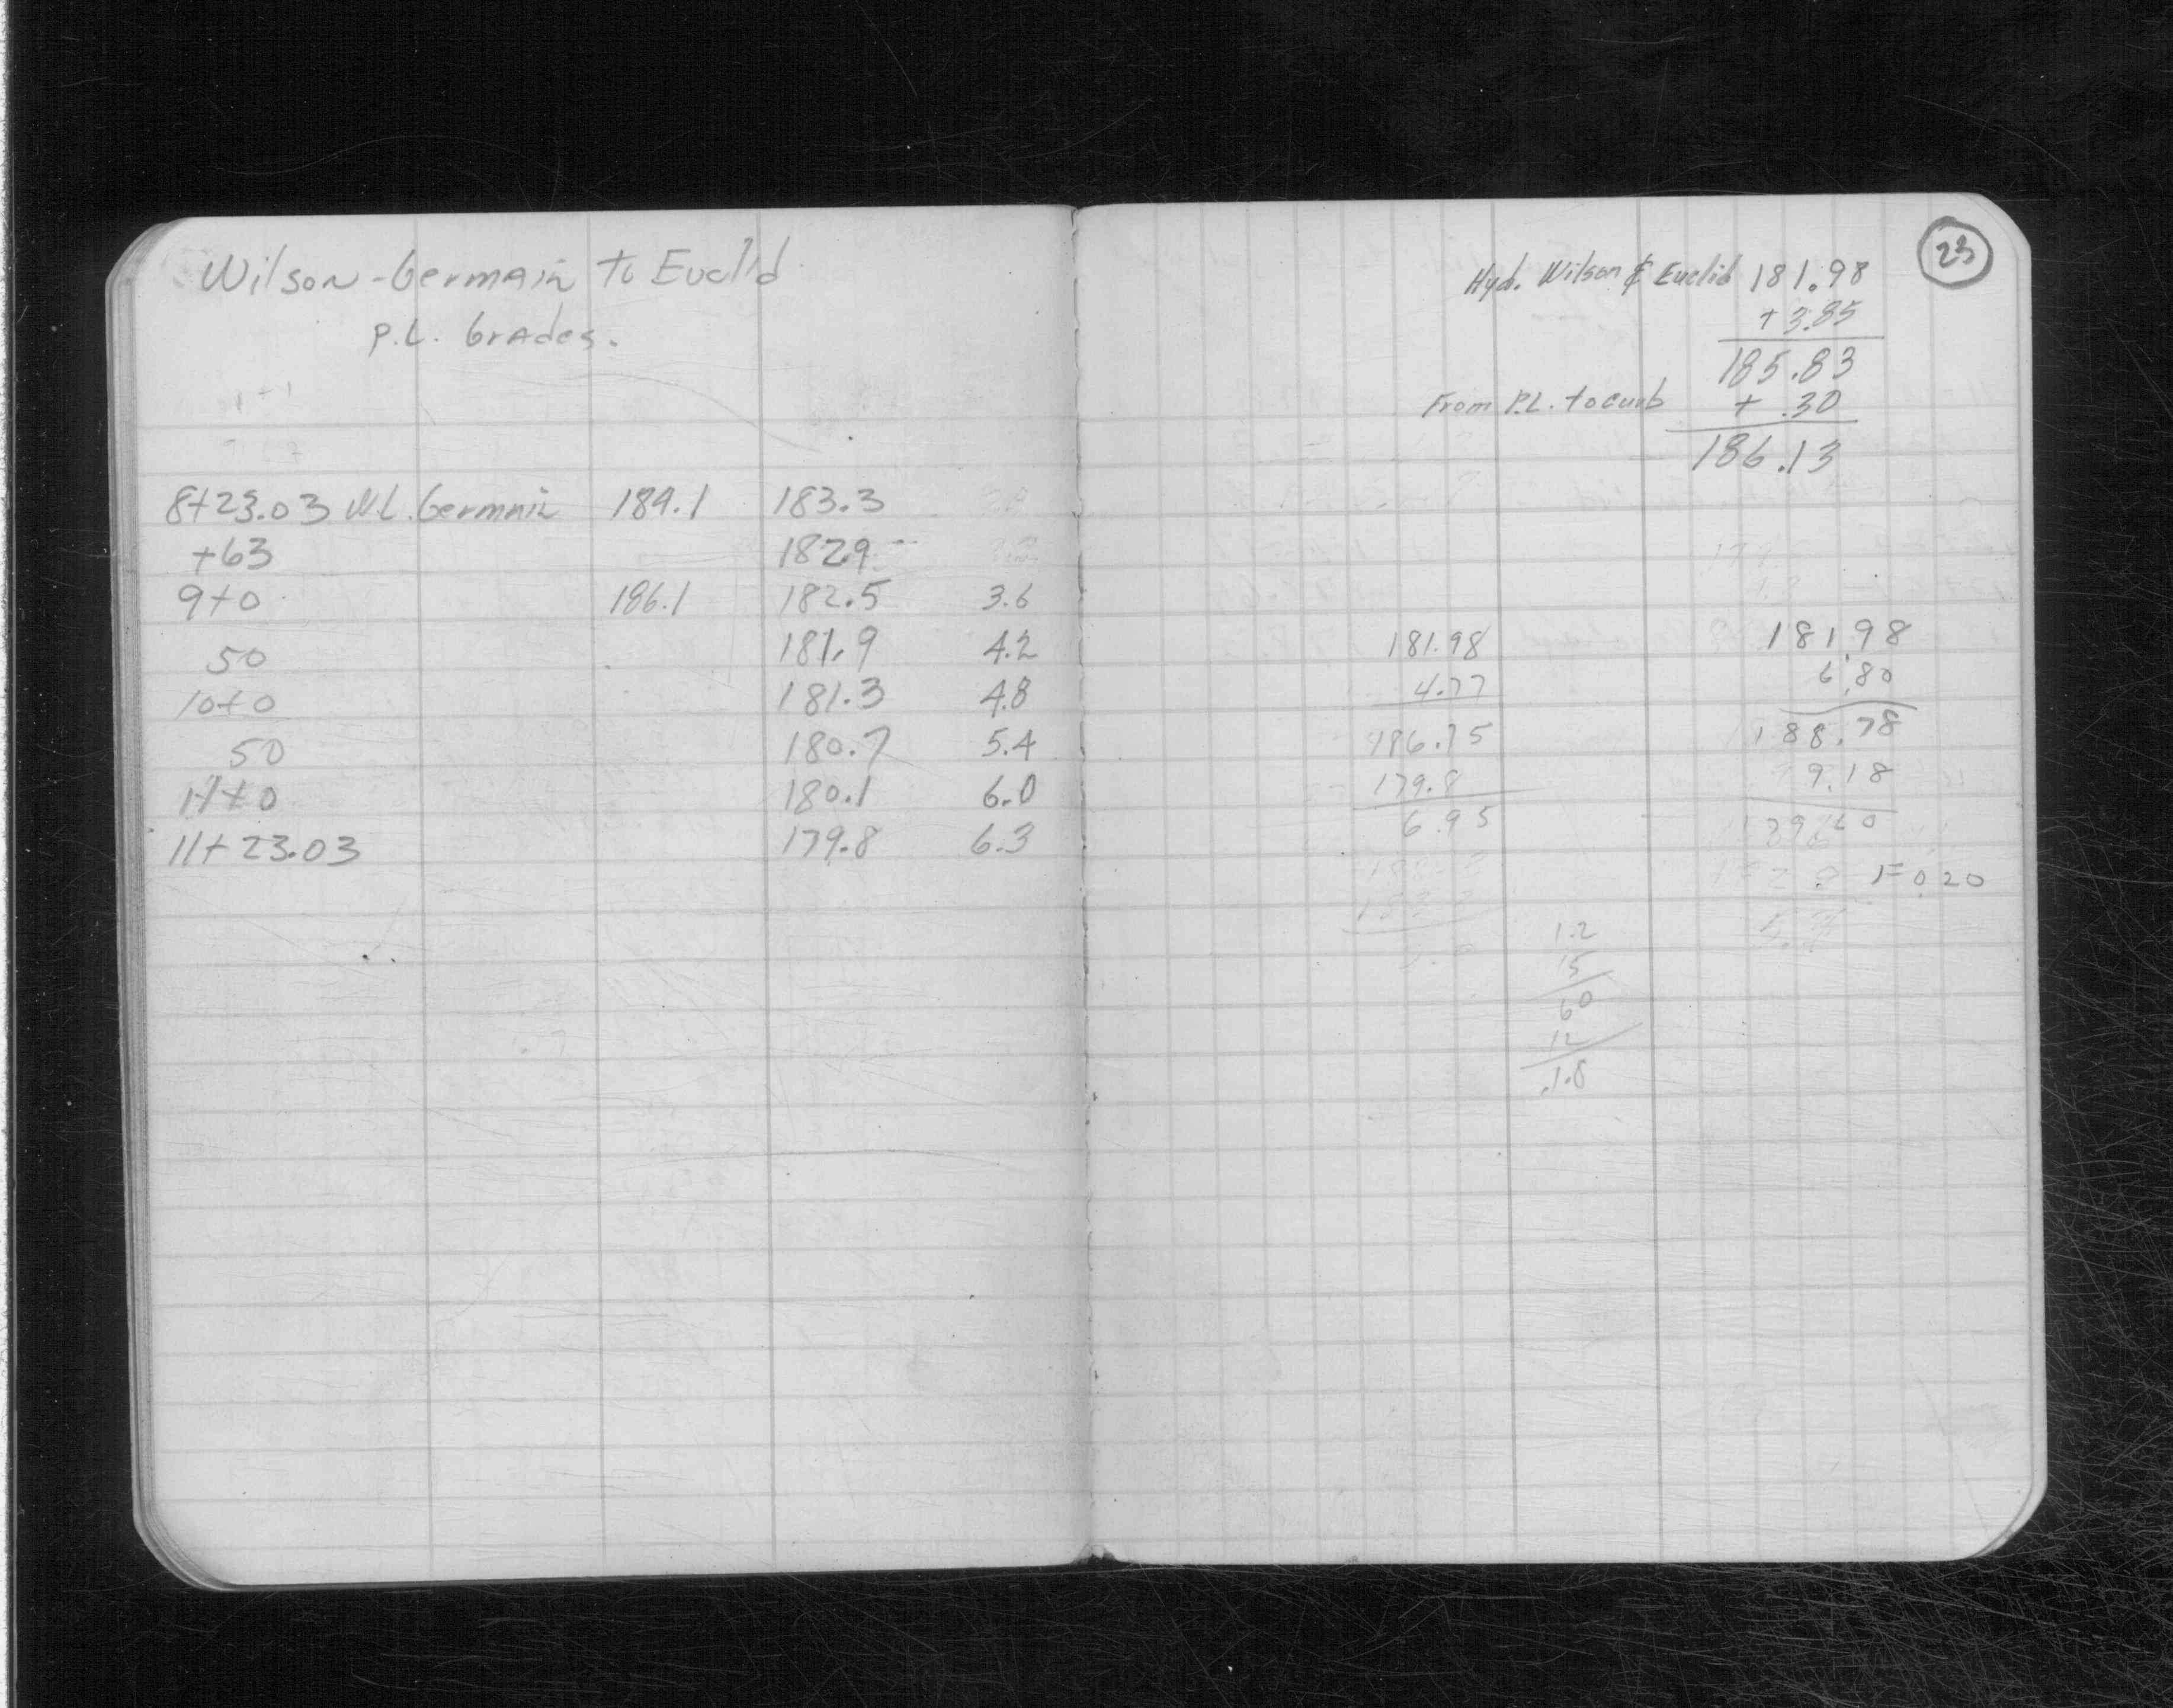 Wilson - Germain to Euclid
P.L. Grades.
8+23.03 W.L. Germain 189.1 183.3
+63 182.9
9+0 186.1 182.5 3.6
50 181.9 4.2
10+0 181.3 4.8
50 180.7 5.4
11+0 180.1 6.0
11+23.03 179.8 6.3
23
Hyd. Wilson & Euclid 181.98
+ 3.85
185.83
From P.L. to curb + .30
186.13
181.98
4.77
186.75
179.8
6.95
181.98
6.80
188.78
9.18
179.60
F= 0.20
1.2
15
60
12
.1.8